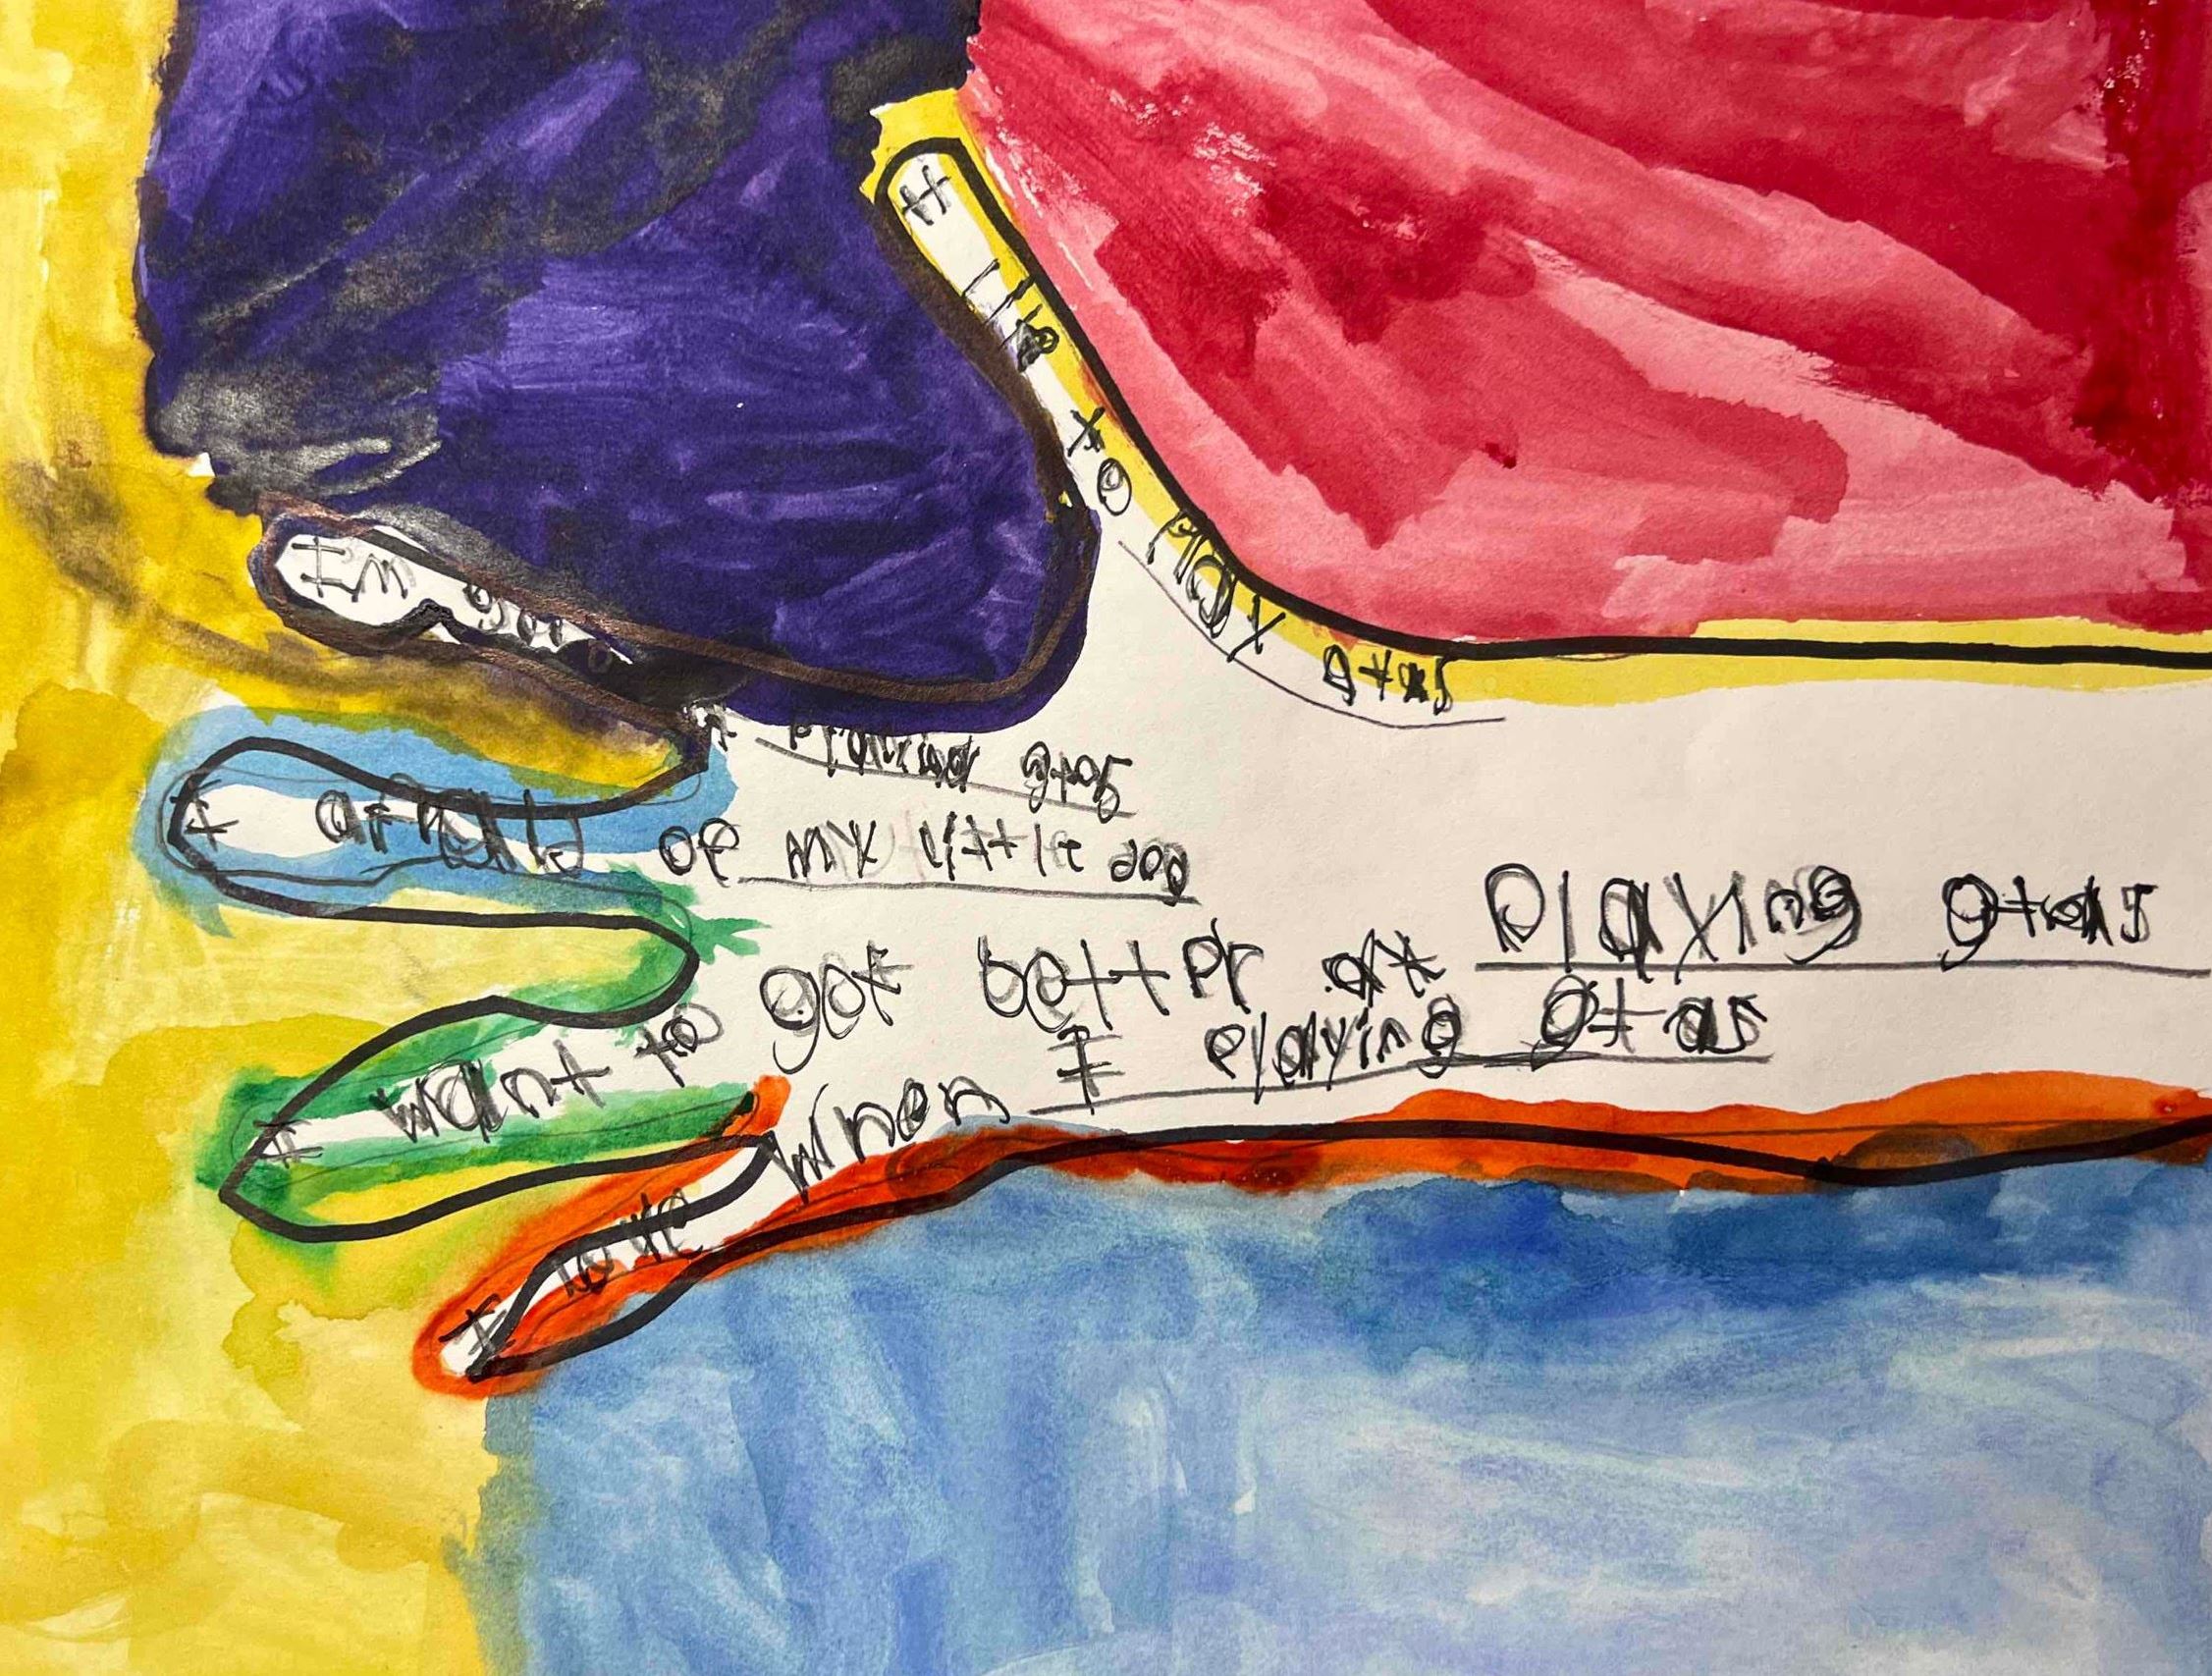 I like to play gtas
Im goo at Playing gtas
I afraid of my little dog
I want to get better at Playing gtas
I love when I playing gtas